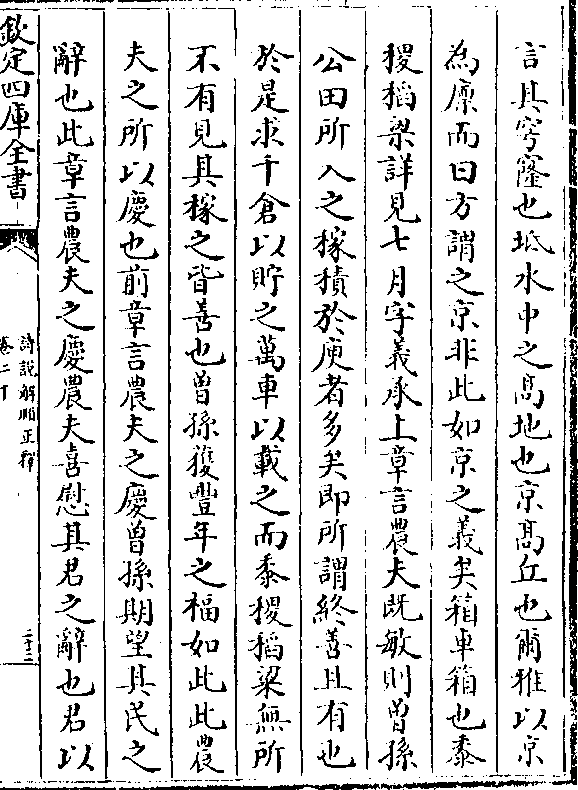 言其穹窿也坻水中之髙地也京髙丘也爾雅以京
為廪而曰方謂之京非此如京之義矣箱車箱也黍
稷稻粱詳見七月字義承上章言農夫既敏則曾孫
公田所入之稼積於庾者多矣即所謂終善且有也
於是求千倉以貯之萬車以載之而黍稷稻粱無所
不有見其稼之皆善也曾孫獲豐年之福如此此農
夫之所以慶也前章言農夫之慶曾孫期望其民之
辭也此章言農夫之慶農夫喜慰其君之辭也君以
欽定四庫全書
詩說解頤正釋
卷二十
二十三